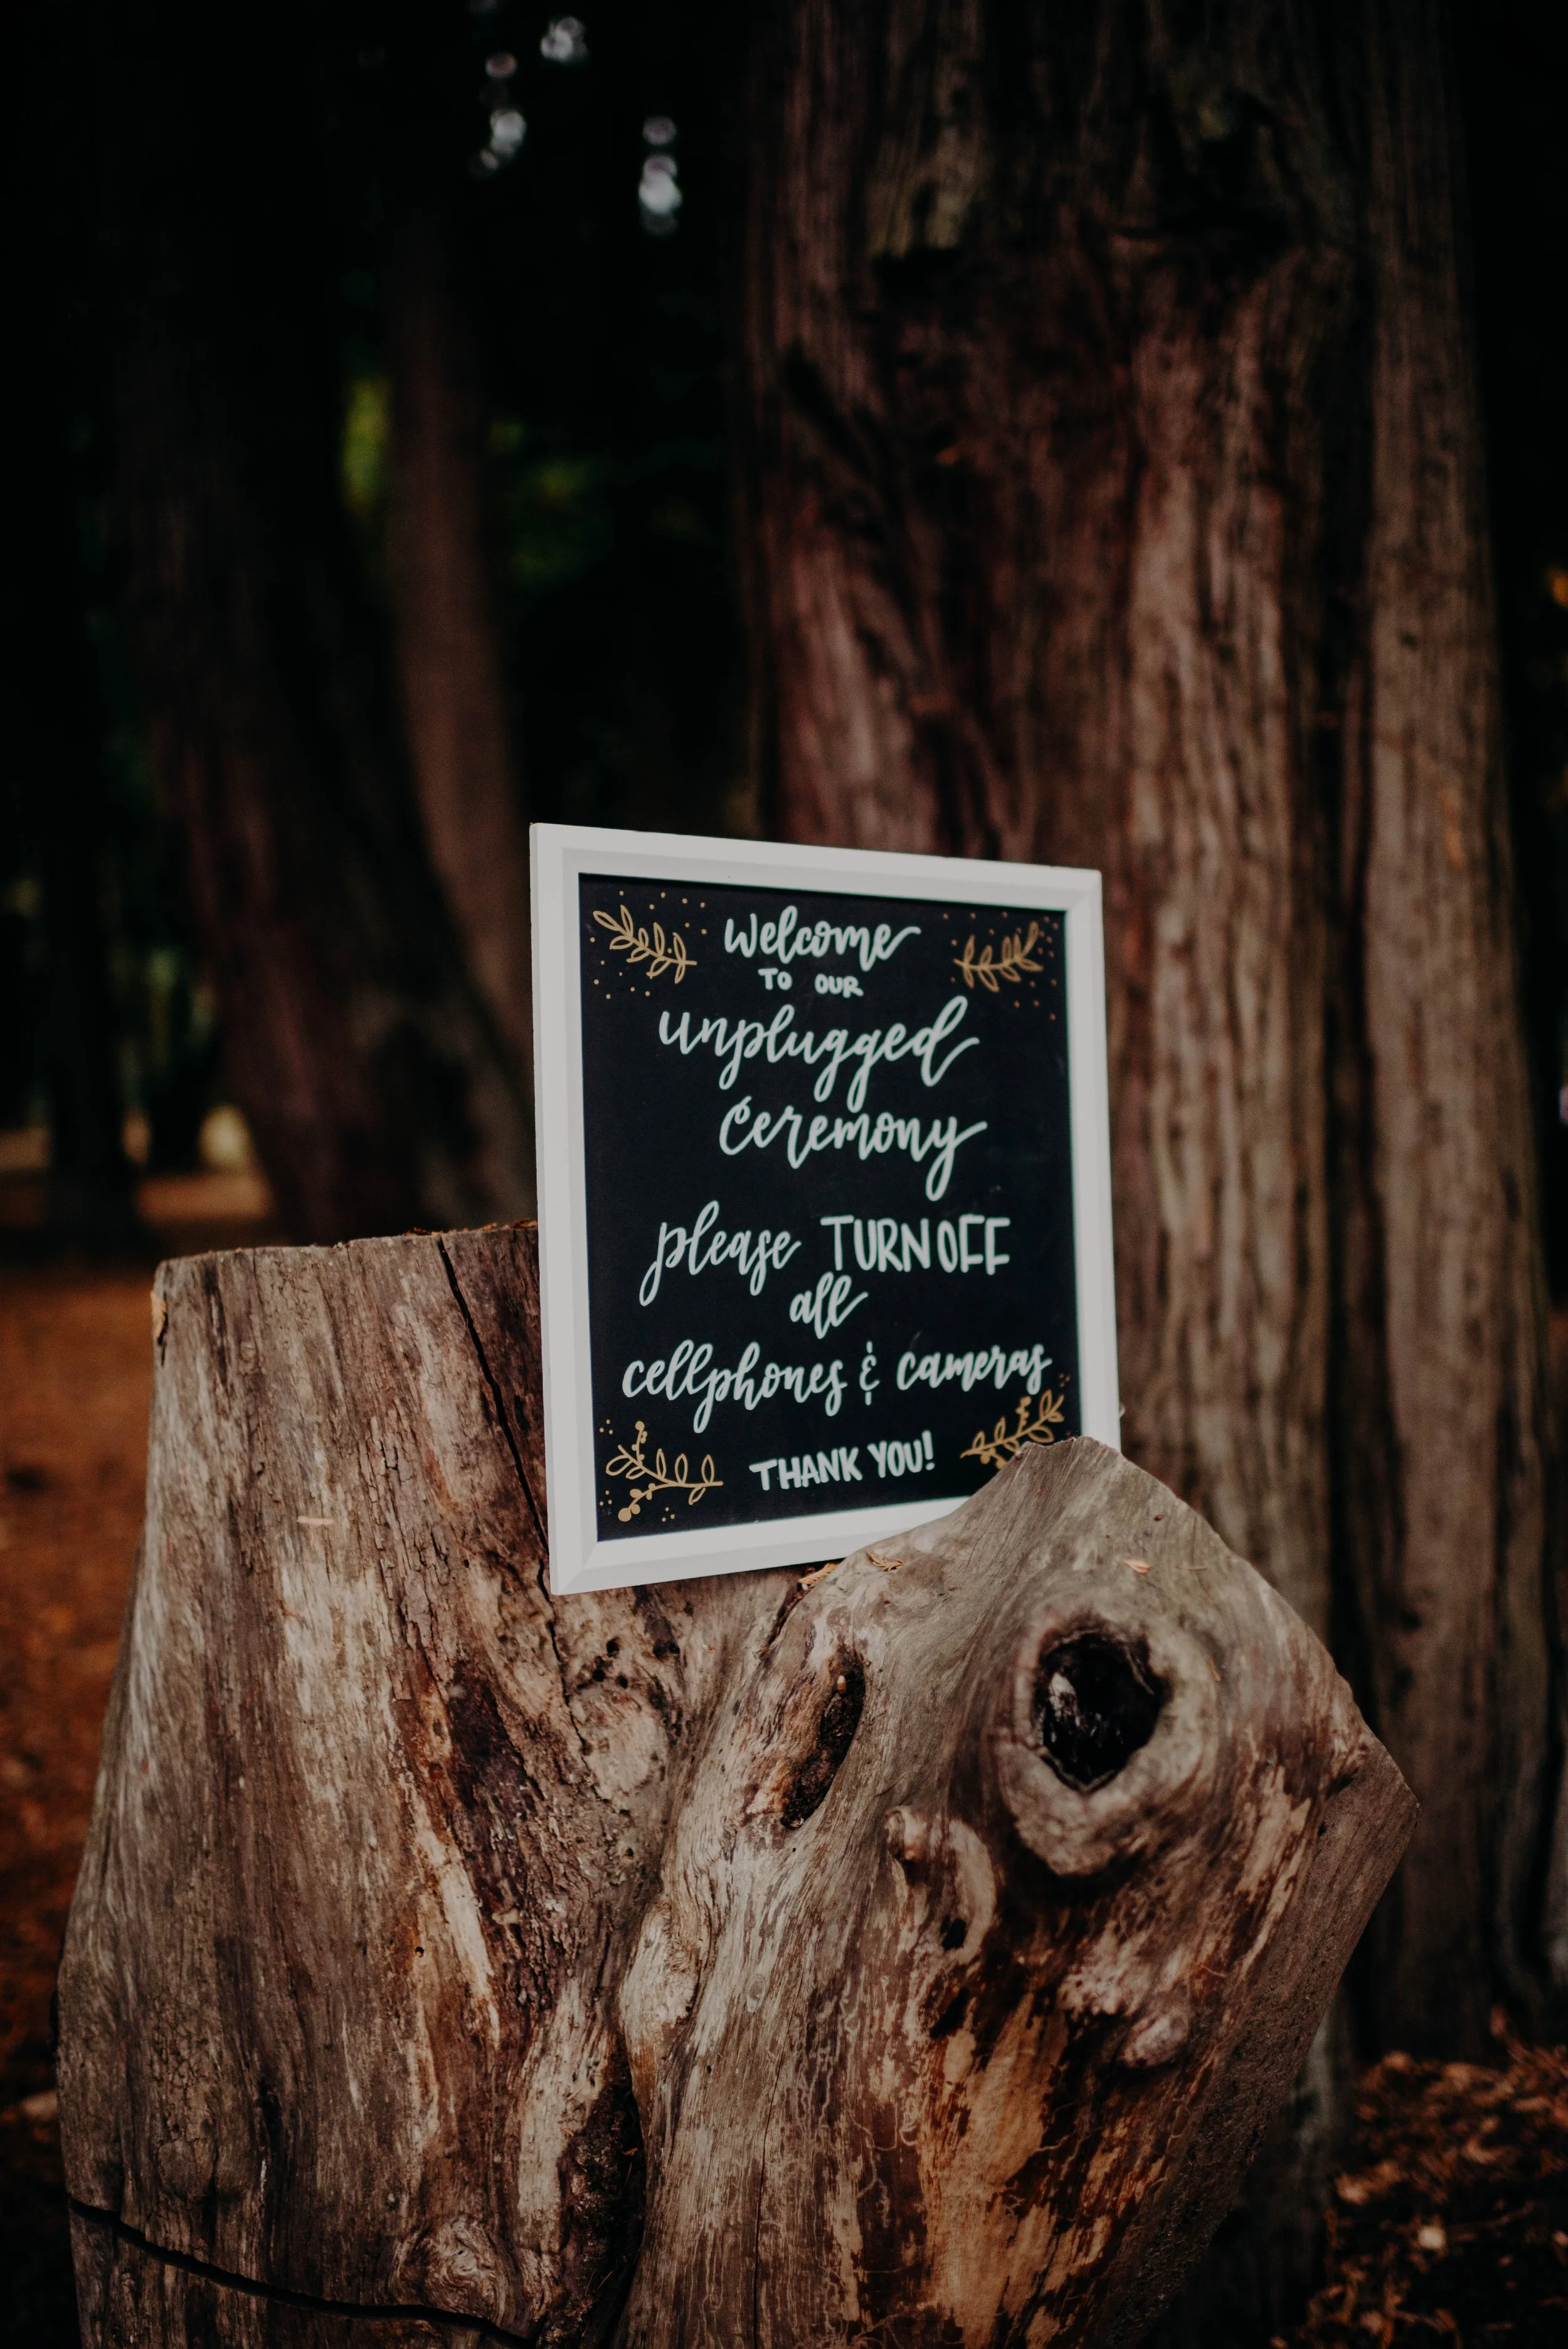 Welcome
TO OUR
unplugged
Ceremony
please TURN OFF
all
cellphones & cameras
THANK YOU!